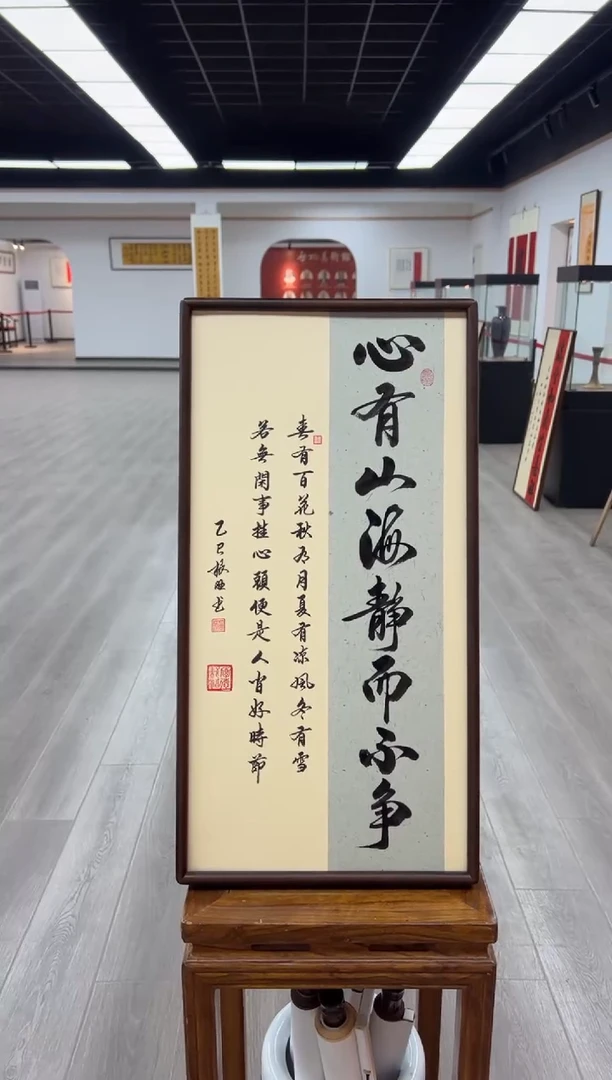 心有山海静而不争
春有百花秋有月夏有凉風冬有雪
若無閑事挂心頭便是人间好時節
乙巳振